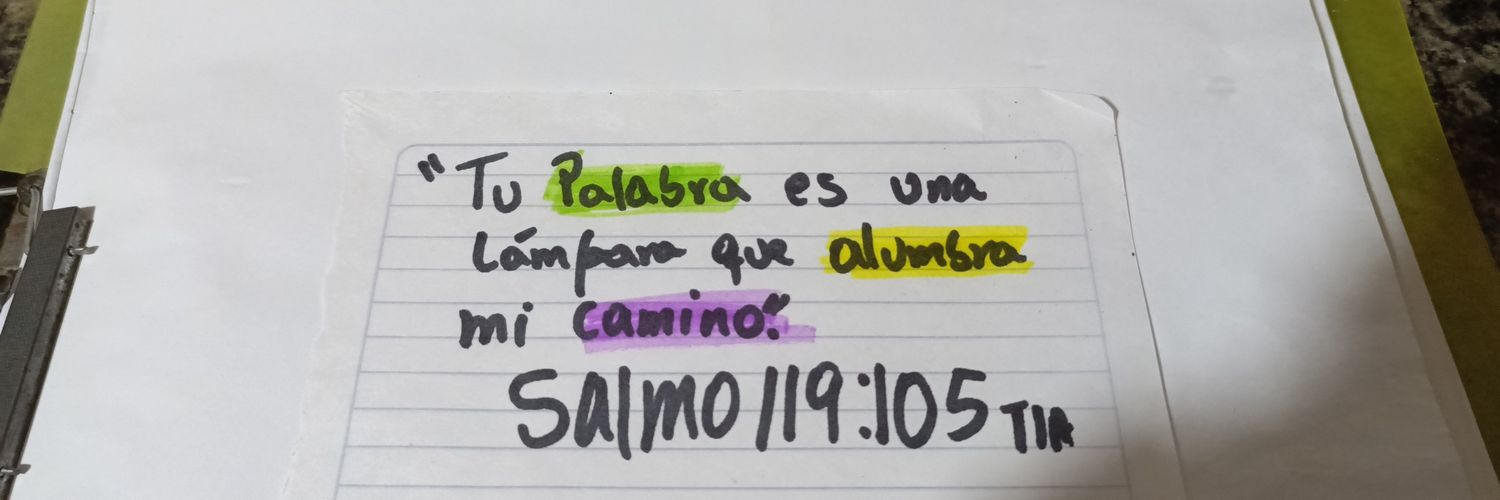 "Tu Palabra es una
Lámpara que alumbra
mi camino."
Salmo 119:105 TLA